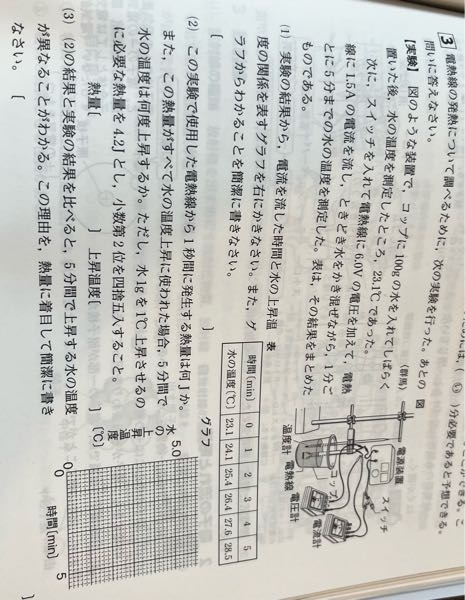 ができる。こ
は,( ㋒ )分必要であると予想できる。
3 電熱線の発熱について調べるために,次の実験を行った。あとの
問いに答えなさい。
(群馬)
【実験】 図のような装置で,コップに100gの水を入れてしばらく
置いた後,水の温度を測定したところ,23.1℃であった。
次に,スイッチを入れて電熱線に6.0Vの電圧を加えて,電熱
線に1.5Aの電流を流し,ときどき水をかき混ぜながら,1分ご
とに5分までの水の温度を測定した。表は,その結果をまとめた
ものである。
図
電源装置
スイッチ
コップ
温度計
電熱線
電圧計
電流計
(1) 実験の結果から,電流を流した時間と水の上昇温
度の関係を表すグラフを右にかきなさい。また,グ
ラフからわかることを簡潔に書きなさい。
[ ]
表
時間〔min〕 0 1 2 3 4 5
水の温度〔℃〕 23.1 24.1 25.4 26.4 27.6 28.5
(2) この実験で使用した電熱線から1秒間に発生する熱量は何Jか。
また,この熱量がすべて水の温度上昇に使われた場合,5分間で
水の温度は何度上昇するか。ただし,水1gを1℃上昇させるの
に必要な熱量を4.2Jとし,小数第2位を四捨五入すること。
熱量[ ] 上昇温度[ ]
グラフ
水の上昇温度
〔℃〕
5.0
0
0
5
時間〔min〕
(3) (2)の結果と実験の結果を比べると,5分間で上昇する水の温度
が異なることがわかる。この理由を,熱量に着目して簡潔に書き
なさい。
]